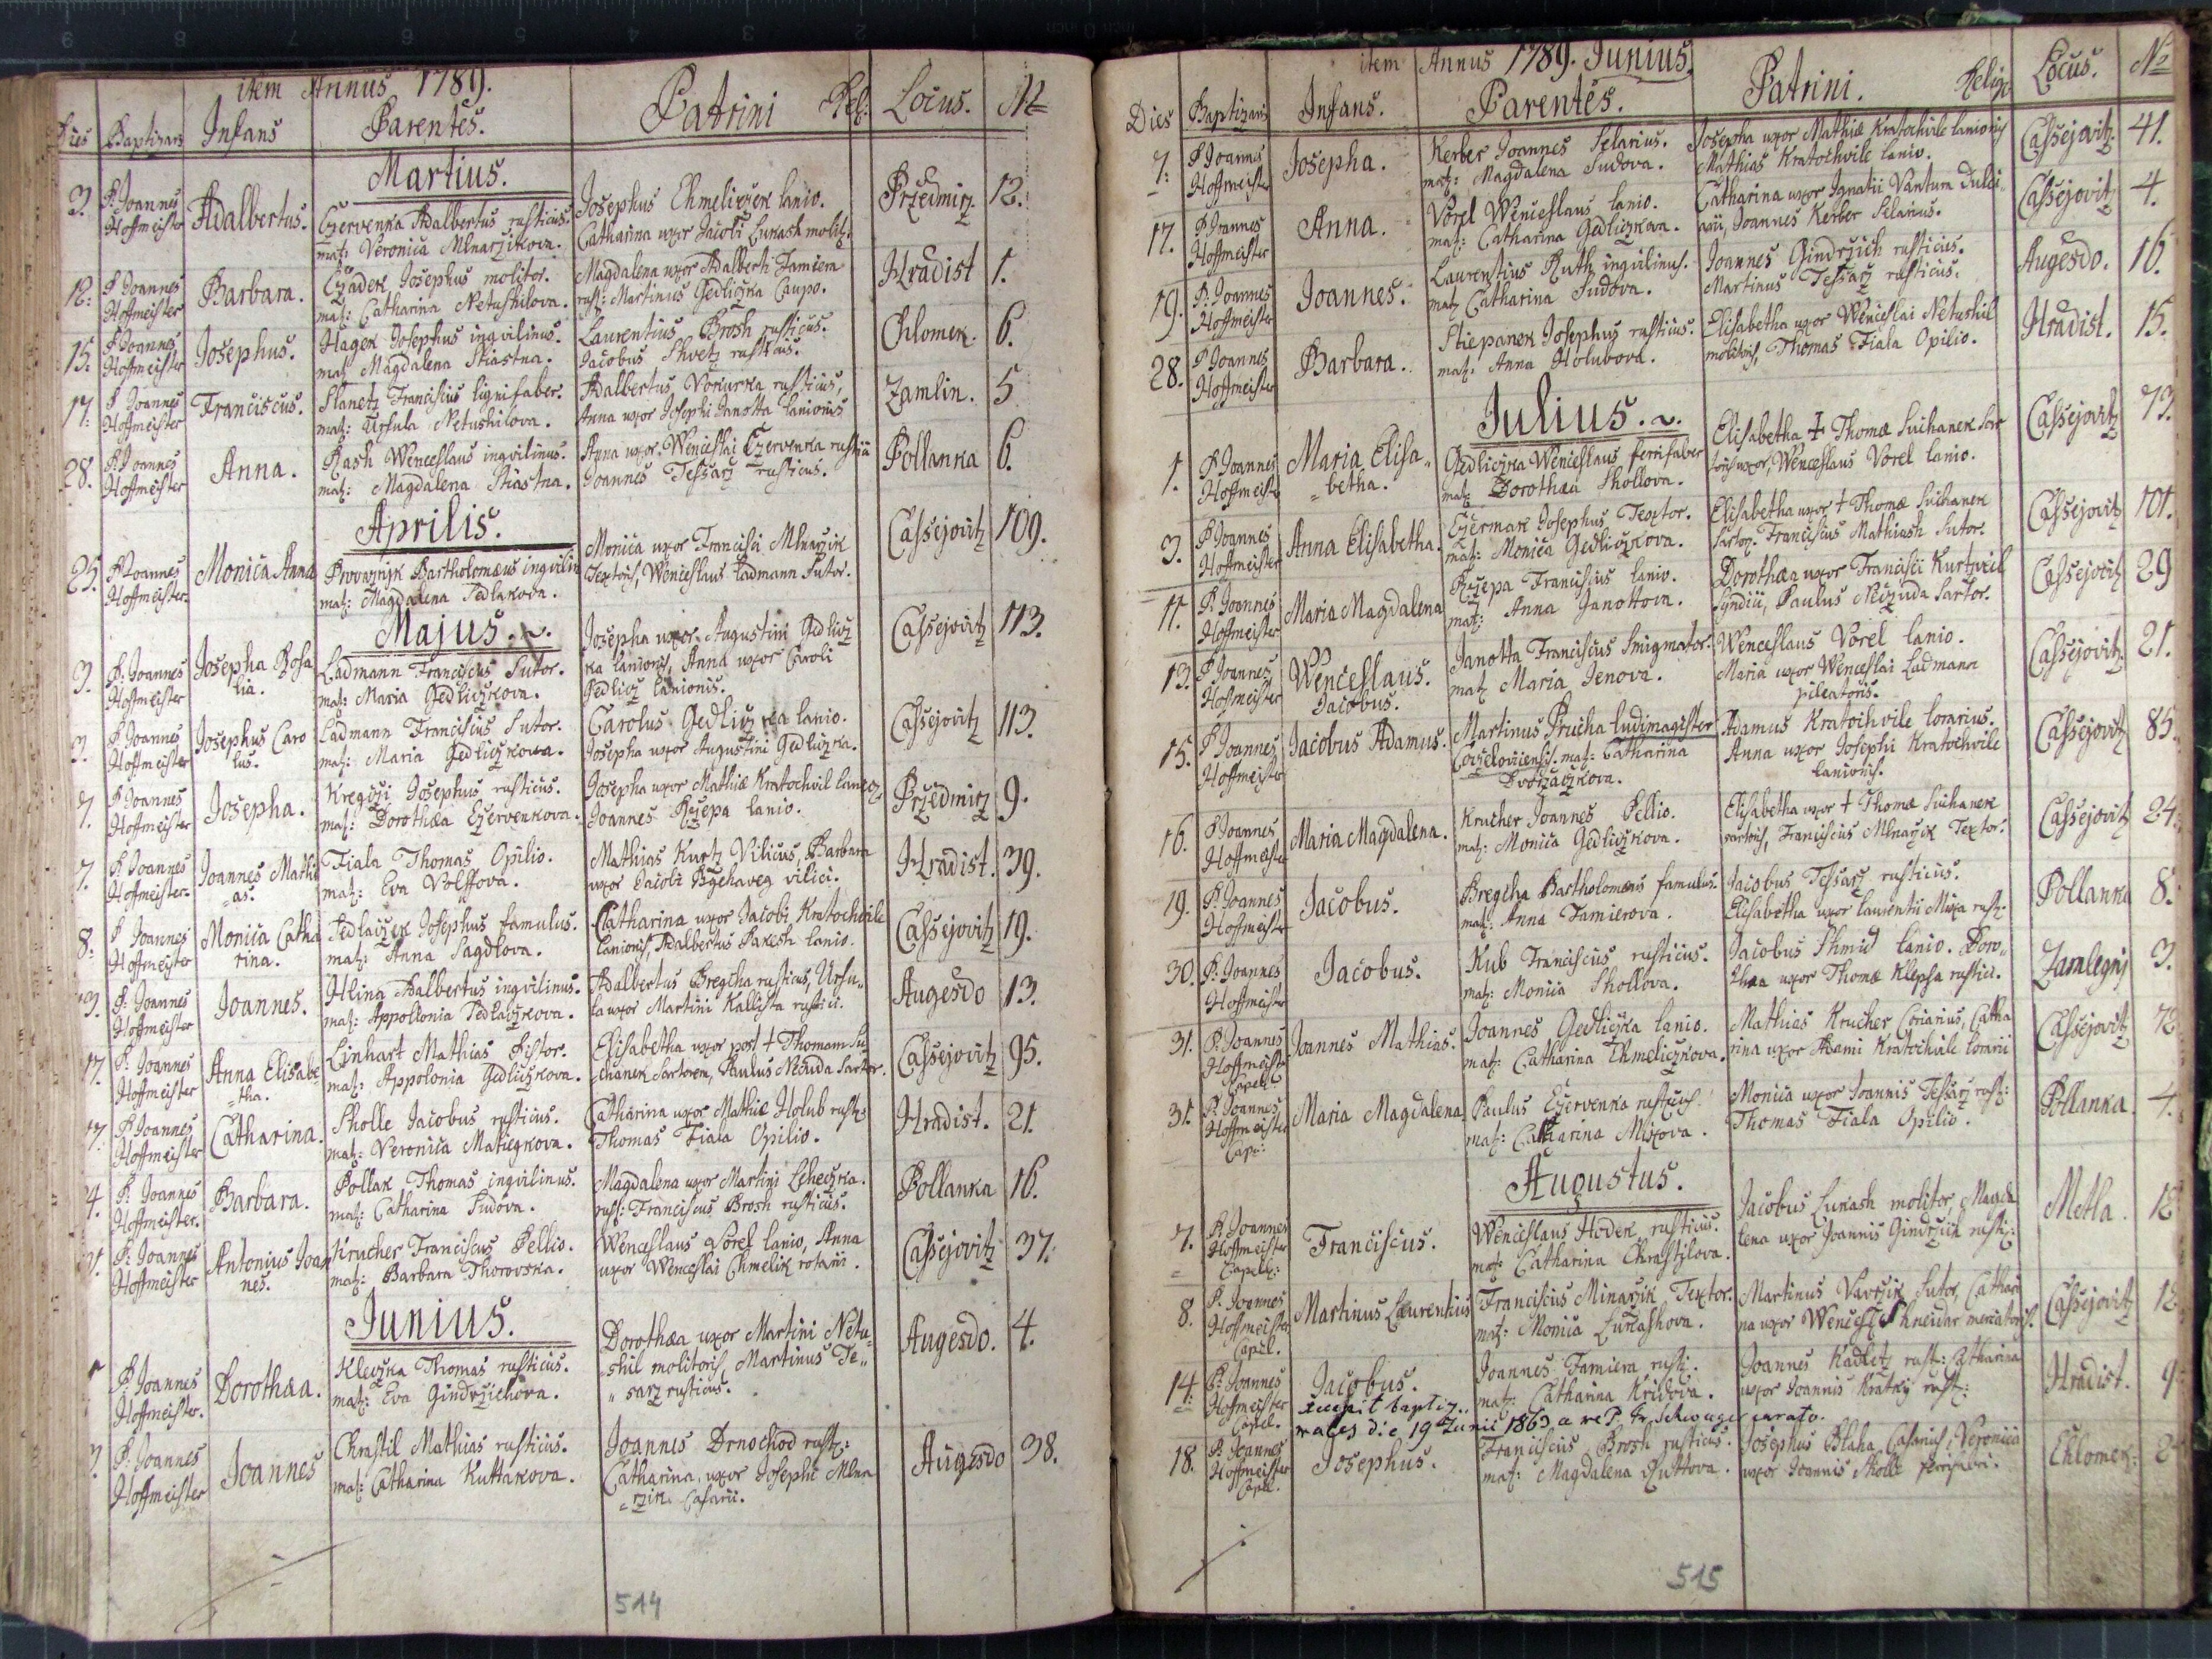 item Annus 1789.
Dies Baptizans Infans Parentes. Patrini Rel: Locus. N
Martius.
3. P. Joannes Hoffmeister Adalbertus. Czervenka Adalbertus rusticus. Josephus Chmeliczek lanio. Przedmirz 12.
mat: Veronica Mlnarzikova. Catharina uxor Jacobi Lukash molit:
12: P. Joannes Hoffmeister Barbara. Czadek Josephus molitor. Magdalena uxor Adalberti Famiera Hradist 1.
mat: Catharina Netushilova. rust: Martinus Gedliczka Caupo.
15: P. Joannes Hoffmeister Josephus. Hagek Josephus inqvilinus. Laurentius Brosh rusticus. Chlomek. 6.
mat Magdalena Stiastna. Jacobus Shvetz rusticus.
17: P. Joannes Hoffmeister Franciscus. Slanetz Franciscus lignifaber. Adalbertus Vokurka rusticus, Zamlin. 5
mat: Ursula Netushilova. Anna uxor Josephi Janotta lanionis
28. P. Joannes Hoffmeister Anna. Rash Wenceslaus inqvilinus. Anna uxor Wenceslai Czervenka rustici Pollanka 6.
mat: Magdalena Stiastna. Joannes Tessarz rusticus.
Aprilis.
25. P. Joannes Hoffmeister. Monica Anna Bartholomæus inqvilin Monica uxor Francisci Mlnarzik Cassejovitz 109.
mat: Magdalena Sedlakova. Textoris, Wenceslaus Ladmann Sutor.
Majus.
3. P. Joannes Hoffmeister Josepha Rosa Ladmann Franciscus Sutor. Josepha uxor Augustini Gedlicz Cassejovitz 113.
lia. mat: Maria Gedliczkova. ka lanionis, Anna uxor Caroli
Gedlicz lanionis.
3. P. Joannes Hoffmeister Josephus Caro Ladmann Franciscus Sutor. Carolus Gedliczka lanio. Cassejovitz 113.
lus. mat: Maria Gedliczkova. Josepha uxor Augustini Gedliczka.
7. P. Joannes Hoffmeister Josepha. Kregczi Josephus rusticus. Josepha uxor Mathiæ Kratochvil Przedmirz 9.
mat: Dorothæa Czervenkova. Joannes Rzepa lanio.
7. P. Joannes Hoffmeister. Joannes Mathi Fiala Thomas Opilio. Mathias Kurtz Vilicus, Barbara Hradist. 39.
=as. mat: Eva Volffova. uxor Jacobi vilici.
8: P. Joannes Hoffmeister Monica Catha Sedlaczek Josephus famulus. Catharina uxor Jacobi Kratochvile Cassejovitz 19.
rina. mat: Anna Sagdlova. lanionis, Adalbertus lanio.
P. Joannes Hoffmeister Joannes. Hlina Adalbertus inqvilinus. Adalbertus Bregcha rusticus, Ursu" Augesdo 13.
mat: Appollonia Sedlaczkova. la uxor Martini Kallista rustici.
17. P. Joannes Hoffmeister Anna Elisabe Linhart Mathias Pistor. Elisabetha uxor post + Thomam Su Cassejovitz 95.
=tha. mat: Appolonia Gedliczkova. chanek Sartorem, Paulus Neczuda Sartor.
17. P. Joannes Hoffmeister Catharina. Sholle Jacobus rusticus. Catharina uxor Mathiæ Holub rust: Hradist. 21.
mat: Veronica Matiegkova. Thomas Fiala Opilio.
4. P. Joannes Hoffmeister. Barbara. Pollak Thomas inqvilinus. Magdalena uxor Martini Leheczka. Pollanka 16.
mat: Catharina Sudova. rust: Franciscus Brosh rusticus.
P. Joannes Hoffmeister Antonius Joan Krucher Franciscus Pellio. Wenceslaus Vorel lanio, Anna Cassejovitz 37.
nes. mat: Barbara Thorovska. uxor Wenceslai Chmelik rotarii.
Junius.
P. Joannes Hoffmeister. Dorothæa. Kleczka Thomas rusticus. Dorothæa uxor Martini Netu= Augesdo. 4.
mat: Eva Gindrzichova. =shil molitoris, Martinus Te"
"sarz rusticus.
P. Joannes Hoffmeister Joannes Chrastil Mathias rusticus. Joannes Drnochod rust: Augesdo 38.
mat: Catharina Kuttakova. Catharina uxor Josephi Mlna
=rzik Casarii.
514
item Annus 1789. Junius.
Dies Baptizans Infans. Parentes. Patrini. Religio Locus. No
7: P. Joannes Hoffmeister Josepha. Kerber Joannes Selarius. Josepha uxor Mathiæ Kratochvile lanionis Cassejovitz. 41.
mat: Magdalena Sudova. Mathias Kratochvile lanio.
17. P. Joannes Hoffmeister Anna. Vorel Wenceslaus lanio. Catharina uxor Ignatii Vantura Dulci" Cassejovitz 4.
mat: Catharina Gedliczkova. arii, Joannes Kerber Selarius.
19. P. Joannes Hoffmeister Joannes. Laurentius Ruth inqvilinus. Joannes Gindrzich rusticus. Augesdo. 16.
mat Catharina Sudova. Martinus Tessarz rusticus.
28. P. Joannes Hoffmeister Barbara. Stiepanek Josephus rusticus. Elisabetha uxor Wenceslai Netushil Hradist. 15.
mat: Anna Holubova. molitoris, Thomas Fiala Opilio.
Julius.
1. P. Joannes Hoffmeister Maria Elisa" Gedliczka Wenceslaus ferrifaber Elisabetha + Thomæ Suchanek Sar Cassejovitz 73.
=betha. mat: Dorothæa Shollova. toris uxor, Wenceslaus Vorel lanio.
3. P. Joannes Hoffmeister Anna Elisabetha. Czermak Josephus Textor. Elisabetha uxor + Thomæ Suchanek Cassejovitz 101.
mat: Monica Gedliczkova. Sartor. Franciscus Mathiash Sutor.
11. P. Joannes Hoffmeister Maria Magdalena Rzepa Franciscus lanio. Dorothæa uxor Francisci Kurtzveil Cassejovitz 29
mat: Anna Janottova. Syndici, Paulus Neczuda Sartor.
13. P. Joannes Hoffmeister Wenceslaus. Janotta Franciscus Smigmator. Wenceslaus Vorel lanio. Cassejovitz 21.
Jacobus. mat Maria Jenova. Maria uxor Wenceslai Ladmann
pileatoris.
15. P. Joannes Hoffmeister Jacobus Adamus. Martinus Prucha ludimagister Adamus Kratochvile lorarius. Cassejovitz 85.
mat: Catharina Anna uxor Josephi Kratochvile
Dvorzaczkova. lanionis.
16. P. Joannes Hoffmeister Maria Magdalena. Krucher Joannes Pellio. Elisabetha uxor + Thomæ Suchanek Cassejovitz 24.
mat: Monica Gedliczkova. sartoris, Franciscus Mlnarzik Textor.
19. P. Joannes Hoffmeister Jacobus. Bregcha Bartholomæus famulus. Jacobus Tessarz rusticus. Pollanka 8.
mat: Anna Famierova. Elisabetha uxor laurentii Mixa rust:
30. P. Joannes Hoffmeister Jacobus. Kub Franciscus rusticus. Jacobus Shmid lanio. Doro" 3.
mat: Monica Shollova. thæa uxor Thomæ Klepsa rustici.
31. P. Joannes Hoffmeister Capel: Joannes Mathias. Joannes Gedliczka lanio. Mathias Krucher Coriarius, Catha Cassejovitz 72
mat: Catharina Chmeliczkova. rina uxor Adami Kratochvile lorarii
31. P. Joannes Hoffmeister Cap: Maria Magdalena Paulus Czervenka rusticus. Monica uxor Joannis Tessarz rust: Pollanka. 4.
mat: Catharina Mixova. Thomas Fiala Opilio.
Augustus.
7. P. Joannes Hoffmeister Capell: Franciscus. Wenceslaus Hodek rusticus. Jacobus Lukash molitor, Magda Metla. 12
mat: Catharina Chrastilova. lena uxor Joannis Gindrzich rust:
8. P. Joannes Hoffmeister Capel. Martinus Laurentius Franciscus Mlnarzik Textor. Martinus Vavrzik Sutor, Cathari Cassejovitz 12
mat: Monica Lucashova. na uxor Wencesl Shneider mercatoris.
14. P. Joannes Hoffmeister Capel. Jacobus. Joannes Famiera rusti. Joannes Kadletz rust: Catharina Hradist. 9
mat: Catharina Kudova. uxor Joannis Kratky rust:
baptiz..
males die 19 Junii 1863 a P. Fr. Schwager curato.
18. P. Joannes Hoffmeister Capel. Josephus. Franciscus Brosh rusticus. Josephus Blaha Casarius, Veronica Chlomek.
mat: Magdalena Ruttova. uxor Joannis Sholle ferrifabri.
515